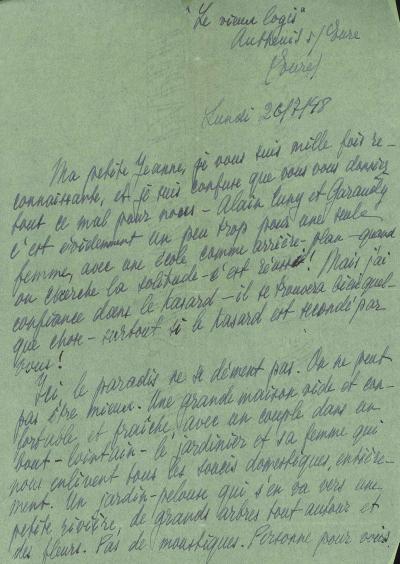 "Le vieux logis"
Autheuil s/Eure
(Eure)
Lundi 26/7/48
Ma petite Jeanne, je vous suis mille fois re-
connaissante, et je suis confuse que vous vous donniez
tout ce mal pour nous - Alain Cuny et Garaudy
c'est évidemment un peu trop pour une seule
femme, avec une école comme arrière-plan - quand
on cherche la solitude - c'est réussi! Mais j'ai
confiance dans le hasard - il se trouvera bien quel-
que chose - surtout si le hasard est secondé par
vous!
Ici le paradis ne se dément pas. On ne peut
pas être mieux. Une grande maison vide et con-
fortable, et fraîche, avec un couple dans un
bout - lointain - le jardinier et sa femme qui
nous enlèvent tous les soucis domestiques, entière-
ment. Un jardin-pelouse qui s'en va vers une
petite rivière, de grands arbres tout autour et
des fleurs. Pas de moustiques. Personne pour vous